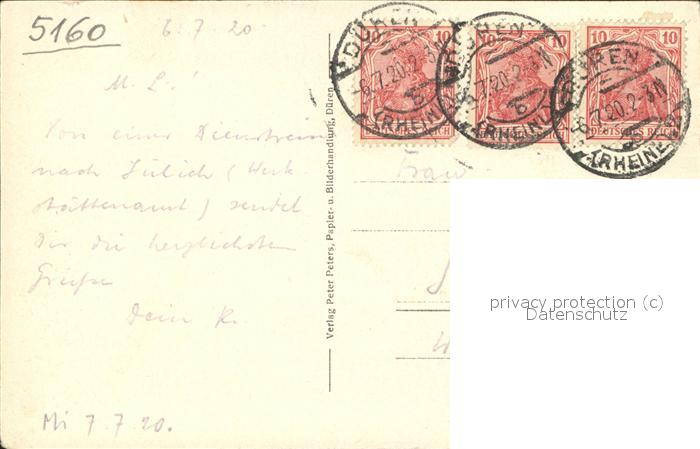 5160
6.7.20.
M. L.!
Von einer Dienstreise
nach Jülich (Werk
stättenamt) sendet
Dir die herzlichsten
Grüße
Dein K.
Mi 7.7.20.
Verlag Peter Peters, Papier- u. Bilderhandlung, Düren
10 10 10 10 10
DEUTSCHES REICH
DÜREN
6.7.20.2-3N
b
(RHEINL)
DÜREN
6.7.20.2-3N
b
(RHEINL)
DÜREN
6.7.20.2-3N
(RHEINL)
Frau
privacy protection (c)
Datenschutz